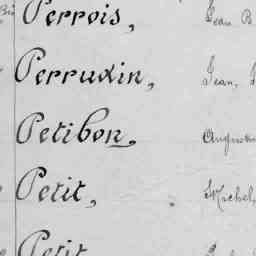 Perrois, Jean B
Perrudin, Jean,
Petibon, Augustin
Petit, Michel,
Petit